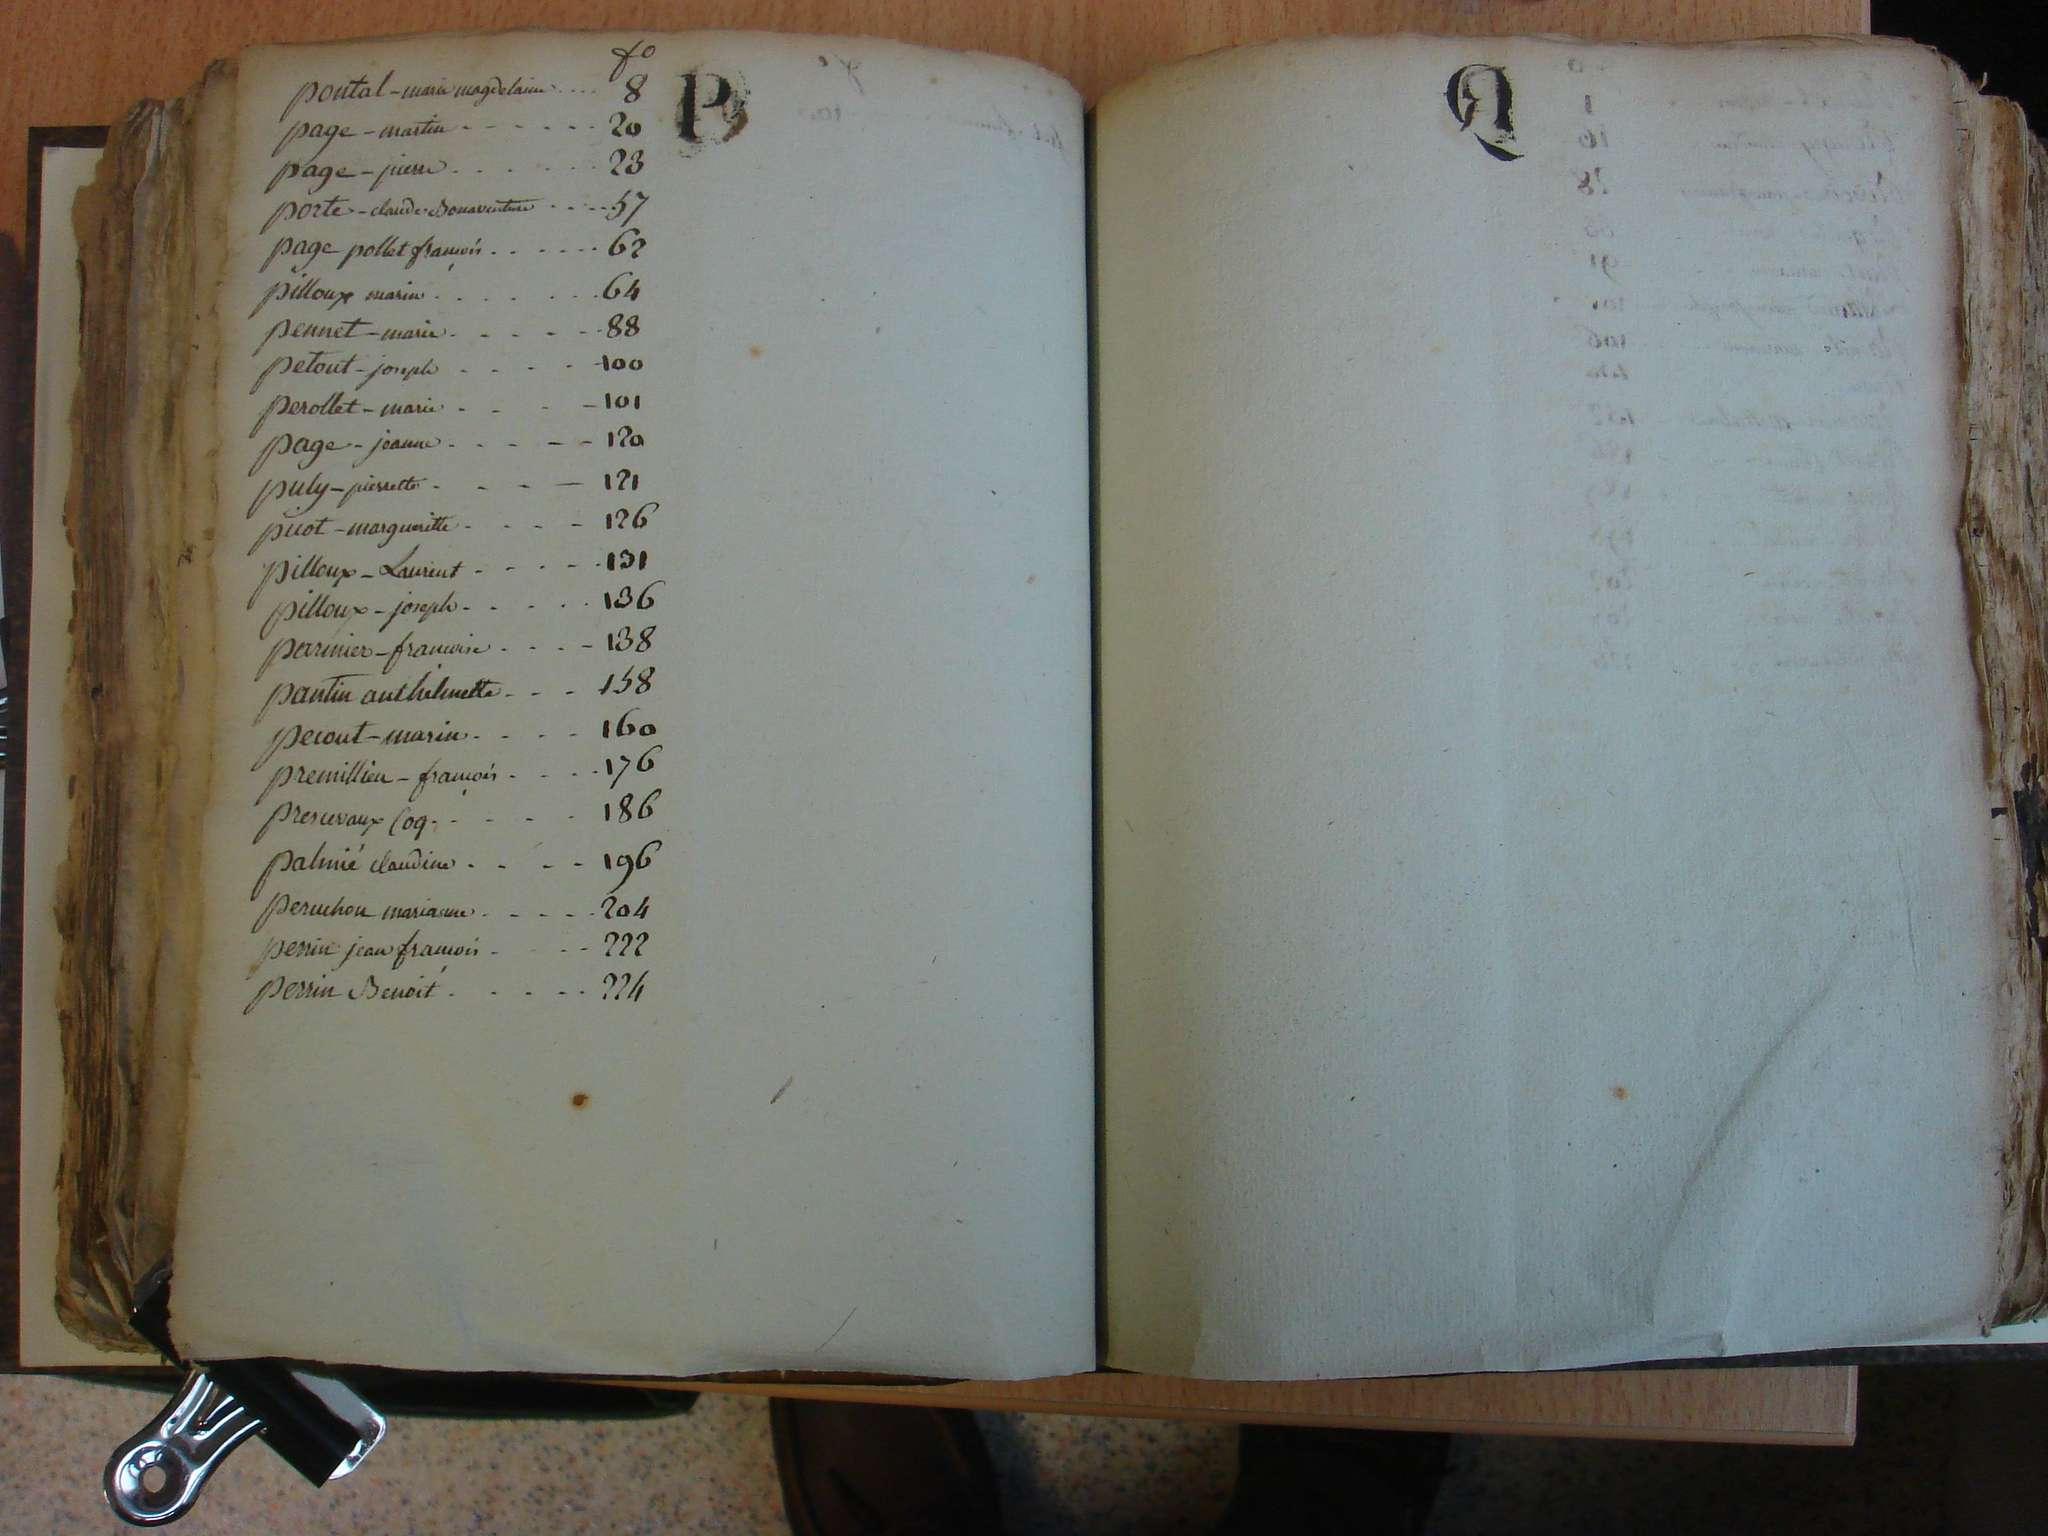 fo
P
pontal - marie magdelaine .... 8
page - martin - - - - - - 20
page - pierre . . . . . . . 23
porte - claude Bonaventure . . . . 57
page pollet francois . . . . . . 62
pilloux marin . . . . . . . 64
pennet - marie . . . . . . 88
petout - joseph . . . . 100
perollet - marie - - - - 101
page - jeanne - - - - - 120
puly - pierrette - - - - 121
picot - margueritte - - - - 126
pilloux - Laurent - - - - - 131
pilloux - joseph - - - - . 136
parinier - francoise - - - - 138
pantin anthelmette - - - 158
pecout - marin - - - - 160
premillieu - francois - - - - 176
prescevaux Coq. - - - - 186
palmié claudine - - - - 196
peruchon marianne - - - - - 204
perrin jean francois - - - - 222
perrin Benoit - - - - - 224
Q